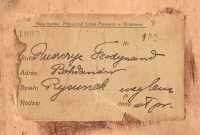 Towarzystwo Przyjaciół Sztuk Pięknych w Krakowie
190
No 182
Ruszczyc Ferdynand
Adres Bohdanów
Dzieło Rysunek węglem
Rodzaj cena